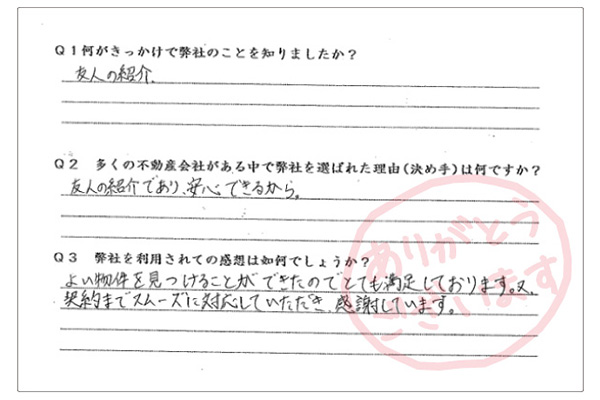 Q１何がきっかけで弊社のことを知りましたか？
友人の紹介、
Q２　多くの不動産会社がある中で弊社を選ばれた理由（決め手）は何ですか？
友人の紹介であり、安心できるから。
Q３　弊社を利用されての感想は如何でしょうか？
よい物件を見つけることができたのでとても満足しております。又、
契約までスムーズに対応していただき、感謝しています。
ありがとう
ございます